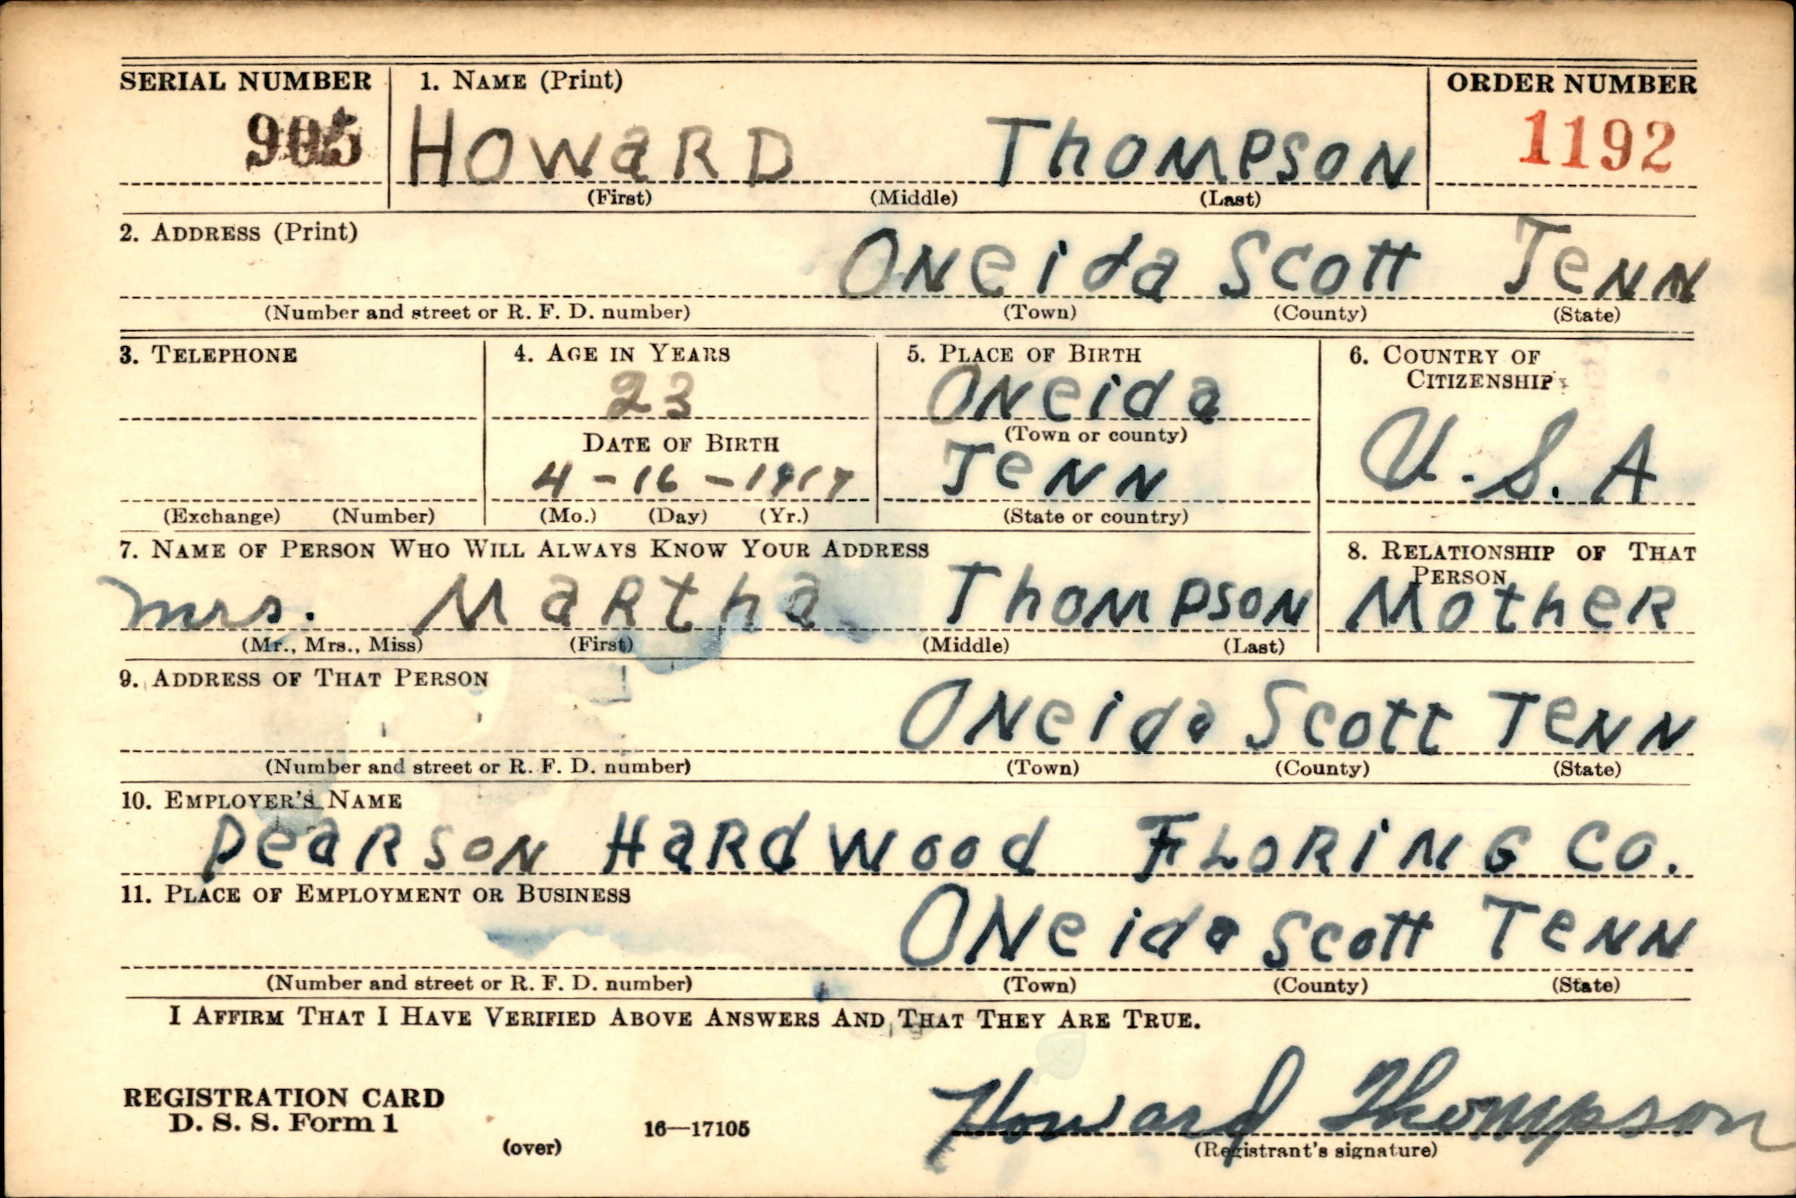 SERIAL NUMBER
1. NAME (Print)
ORDER NUMBER
HOWARD THOMPSON
1192
(First) (Middle) (Last)
2. ADDRESS (Print)
ONeida Scott TENN
(Number and street or R. F. D. number) (Town) (County) (State)
3. TELEPHONE
4. AGE IN YEARS
5. PLACE OF BIRTH
6. COUNTRY OF
CITIZENSHIP
23
ONeida
DATE OF BIRTH
(Town or county)
4-16-1917
TENN
U.S.A
(Exchange) (Number)
(Mo.) (Day) (Yr.)
(State or country)
7. NAME OF PERSON WHO WILL ALWAYS KNOW YOUR ADDRESS
8. RELATIONSHIP OF THAT
PERSON
Mrs. Martha Thompson
Mother
(Mr., Mrs., Miss) (First) (Middle) (Last)
9. ADDRESS OF THAT PERSON
ONeida Scott TENN
(Number and street or R. F. D. number) (Town) (County) (State)
10. EMPLOYER'S NAME
Pearson Hardwood Floring Co.
11. PLACE OF EMPLOYMENT OR BUSINESS
ONeida Scott TENN
(Number and street or R. F. D. number) (Town) (County) (State)
I AFFIRM THAT I HAVE VERIFIED ABOVE ANSWERS AND THAT THEY ARE TRUE.
REGISTRATION CARD
D. S. S. Form 1
(over)
16—17105
Howard Thompson
(Registrant's signature)